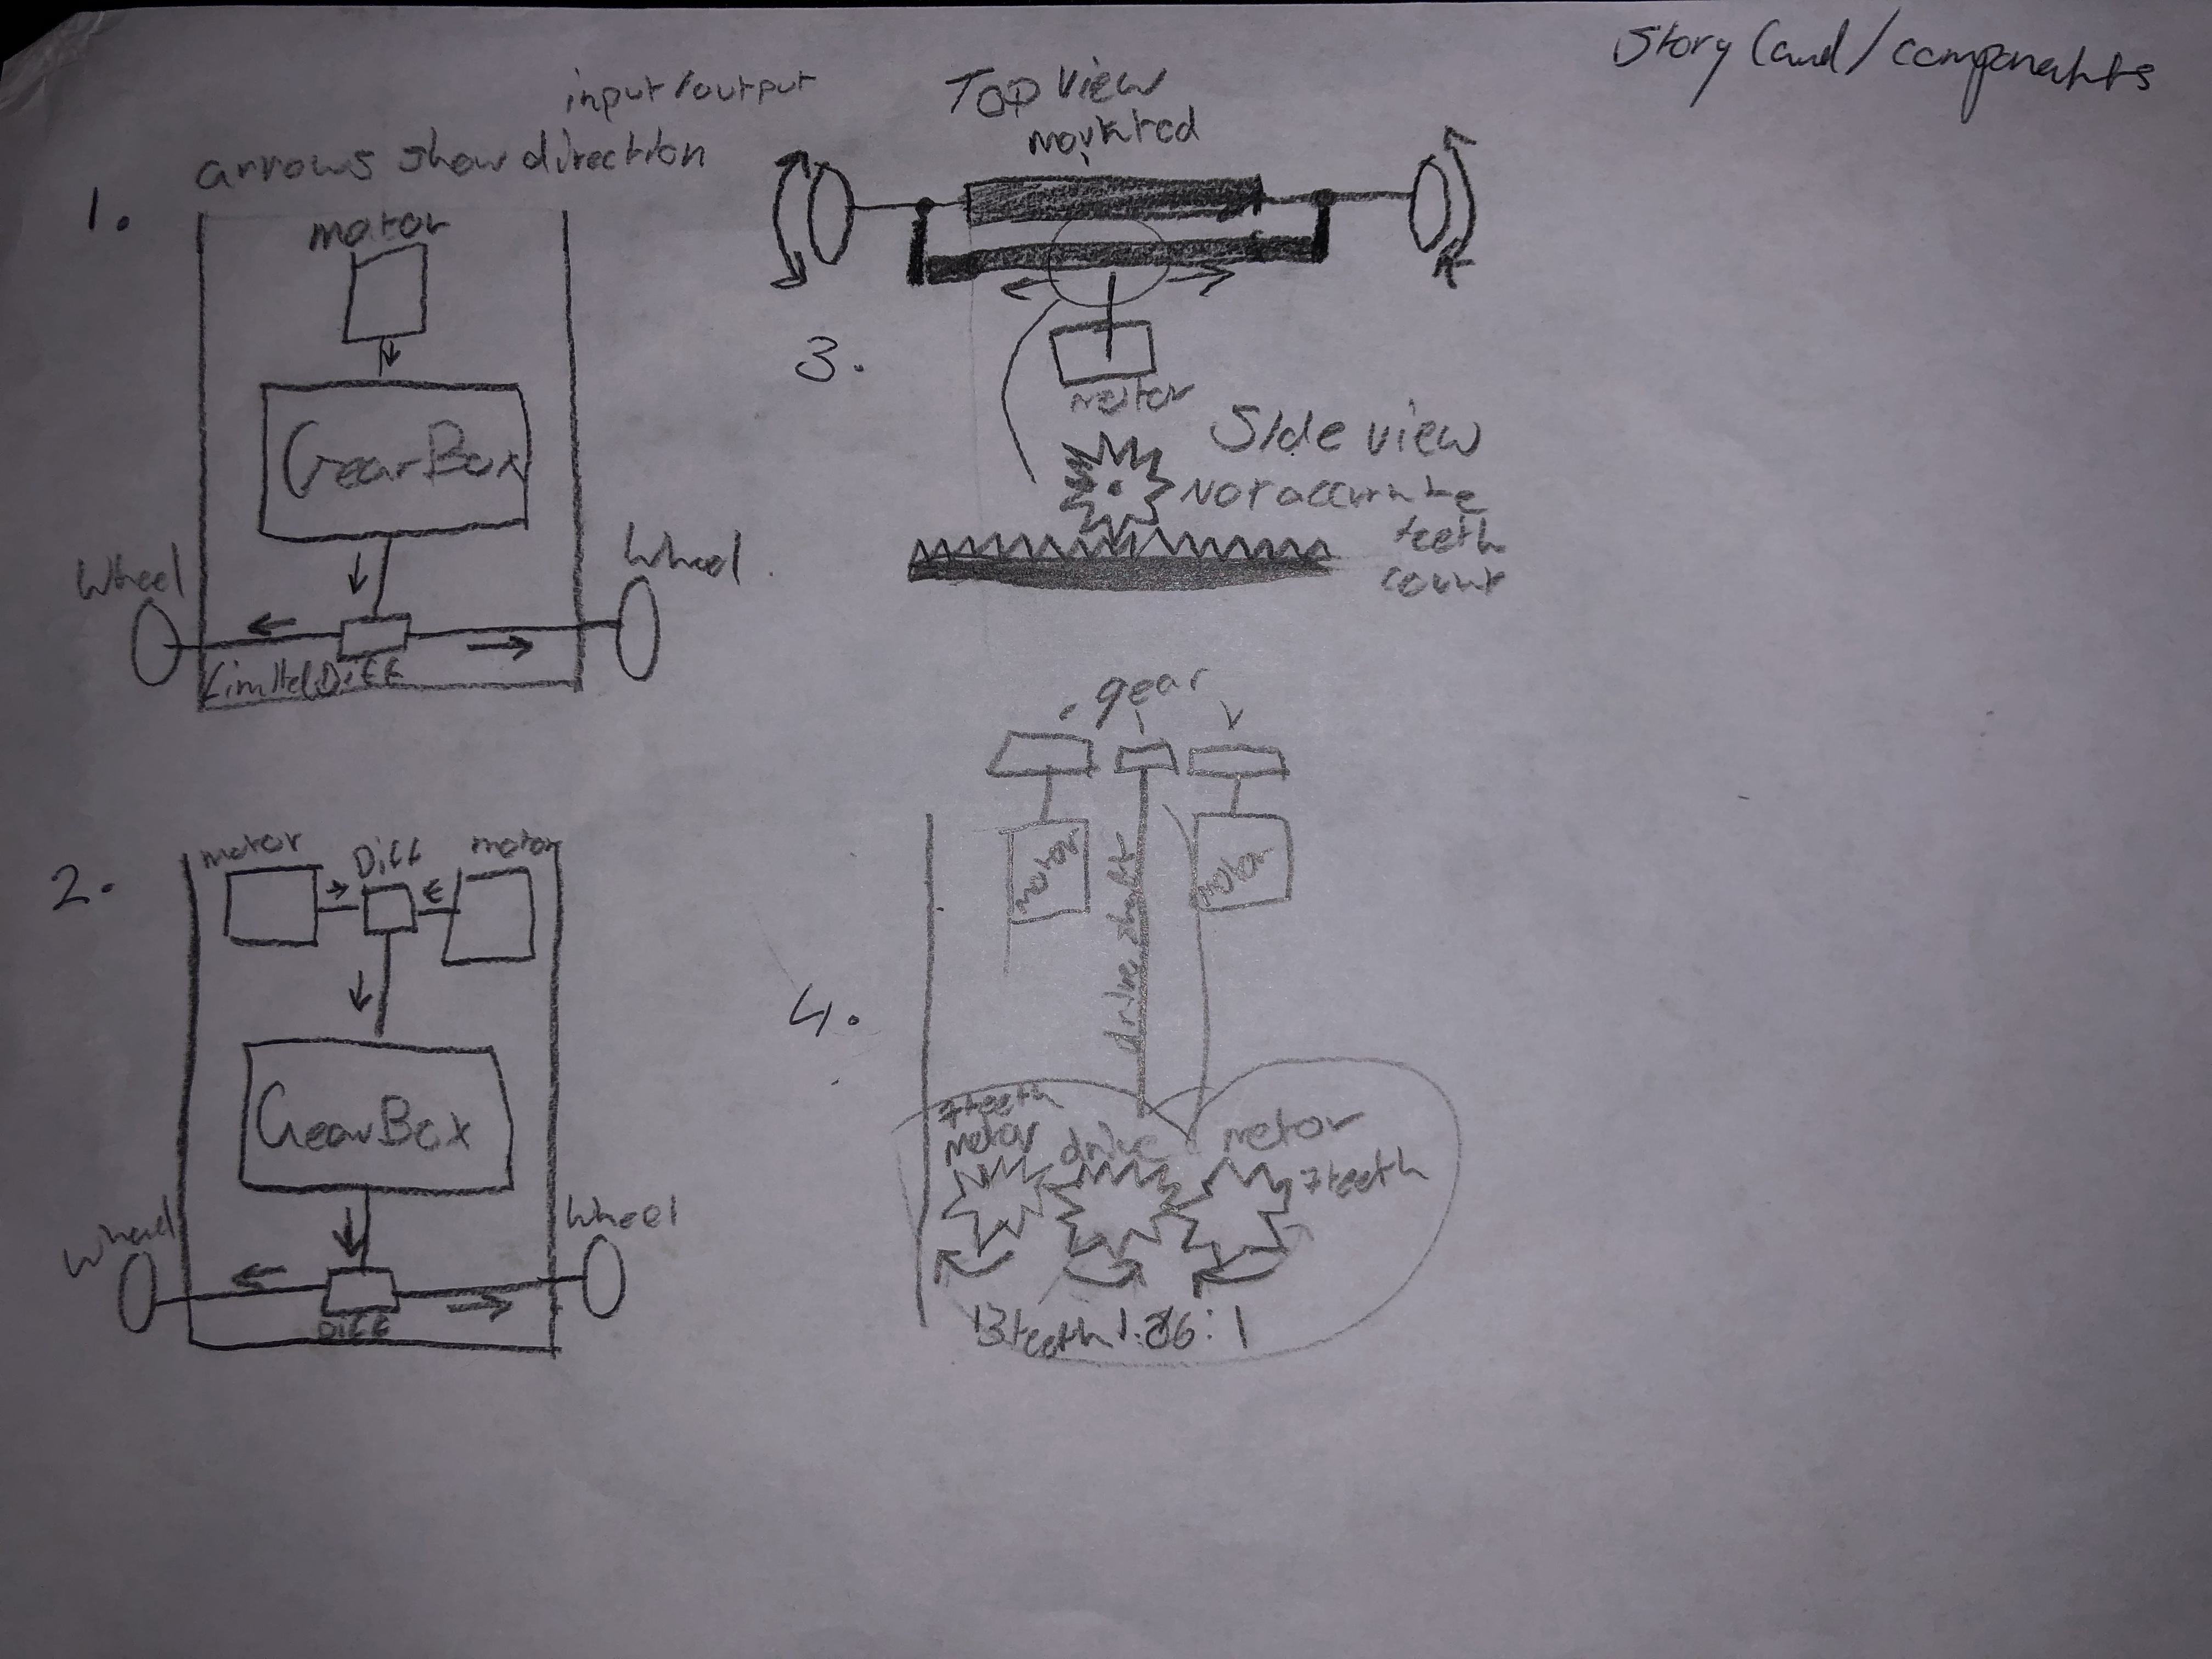 Story Card/components
input/output
arrows show direction
1.
motor
GearBox
wheel
wheel
Limited Diff
2.
motor
Diff
motor
GearBox
wheel
wheel
Diff
TOP view
3.
motor
Side view
Not accurate
teeth
count
4.
gear
motor
drive shaft
motor
7 teeth
motor
drive
motor
7 teeth
13 teeth 1:86:1